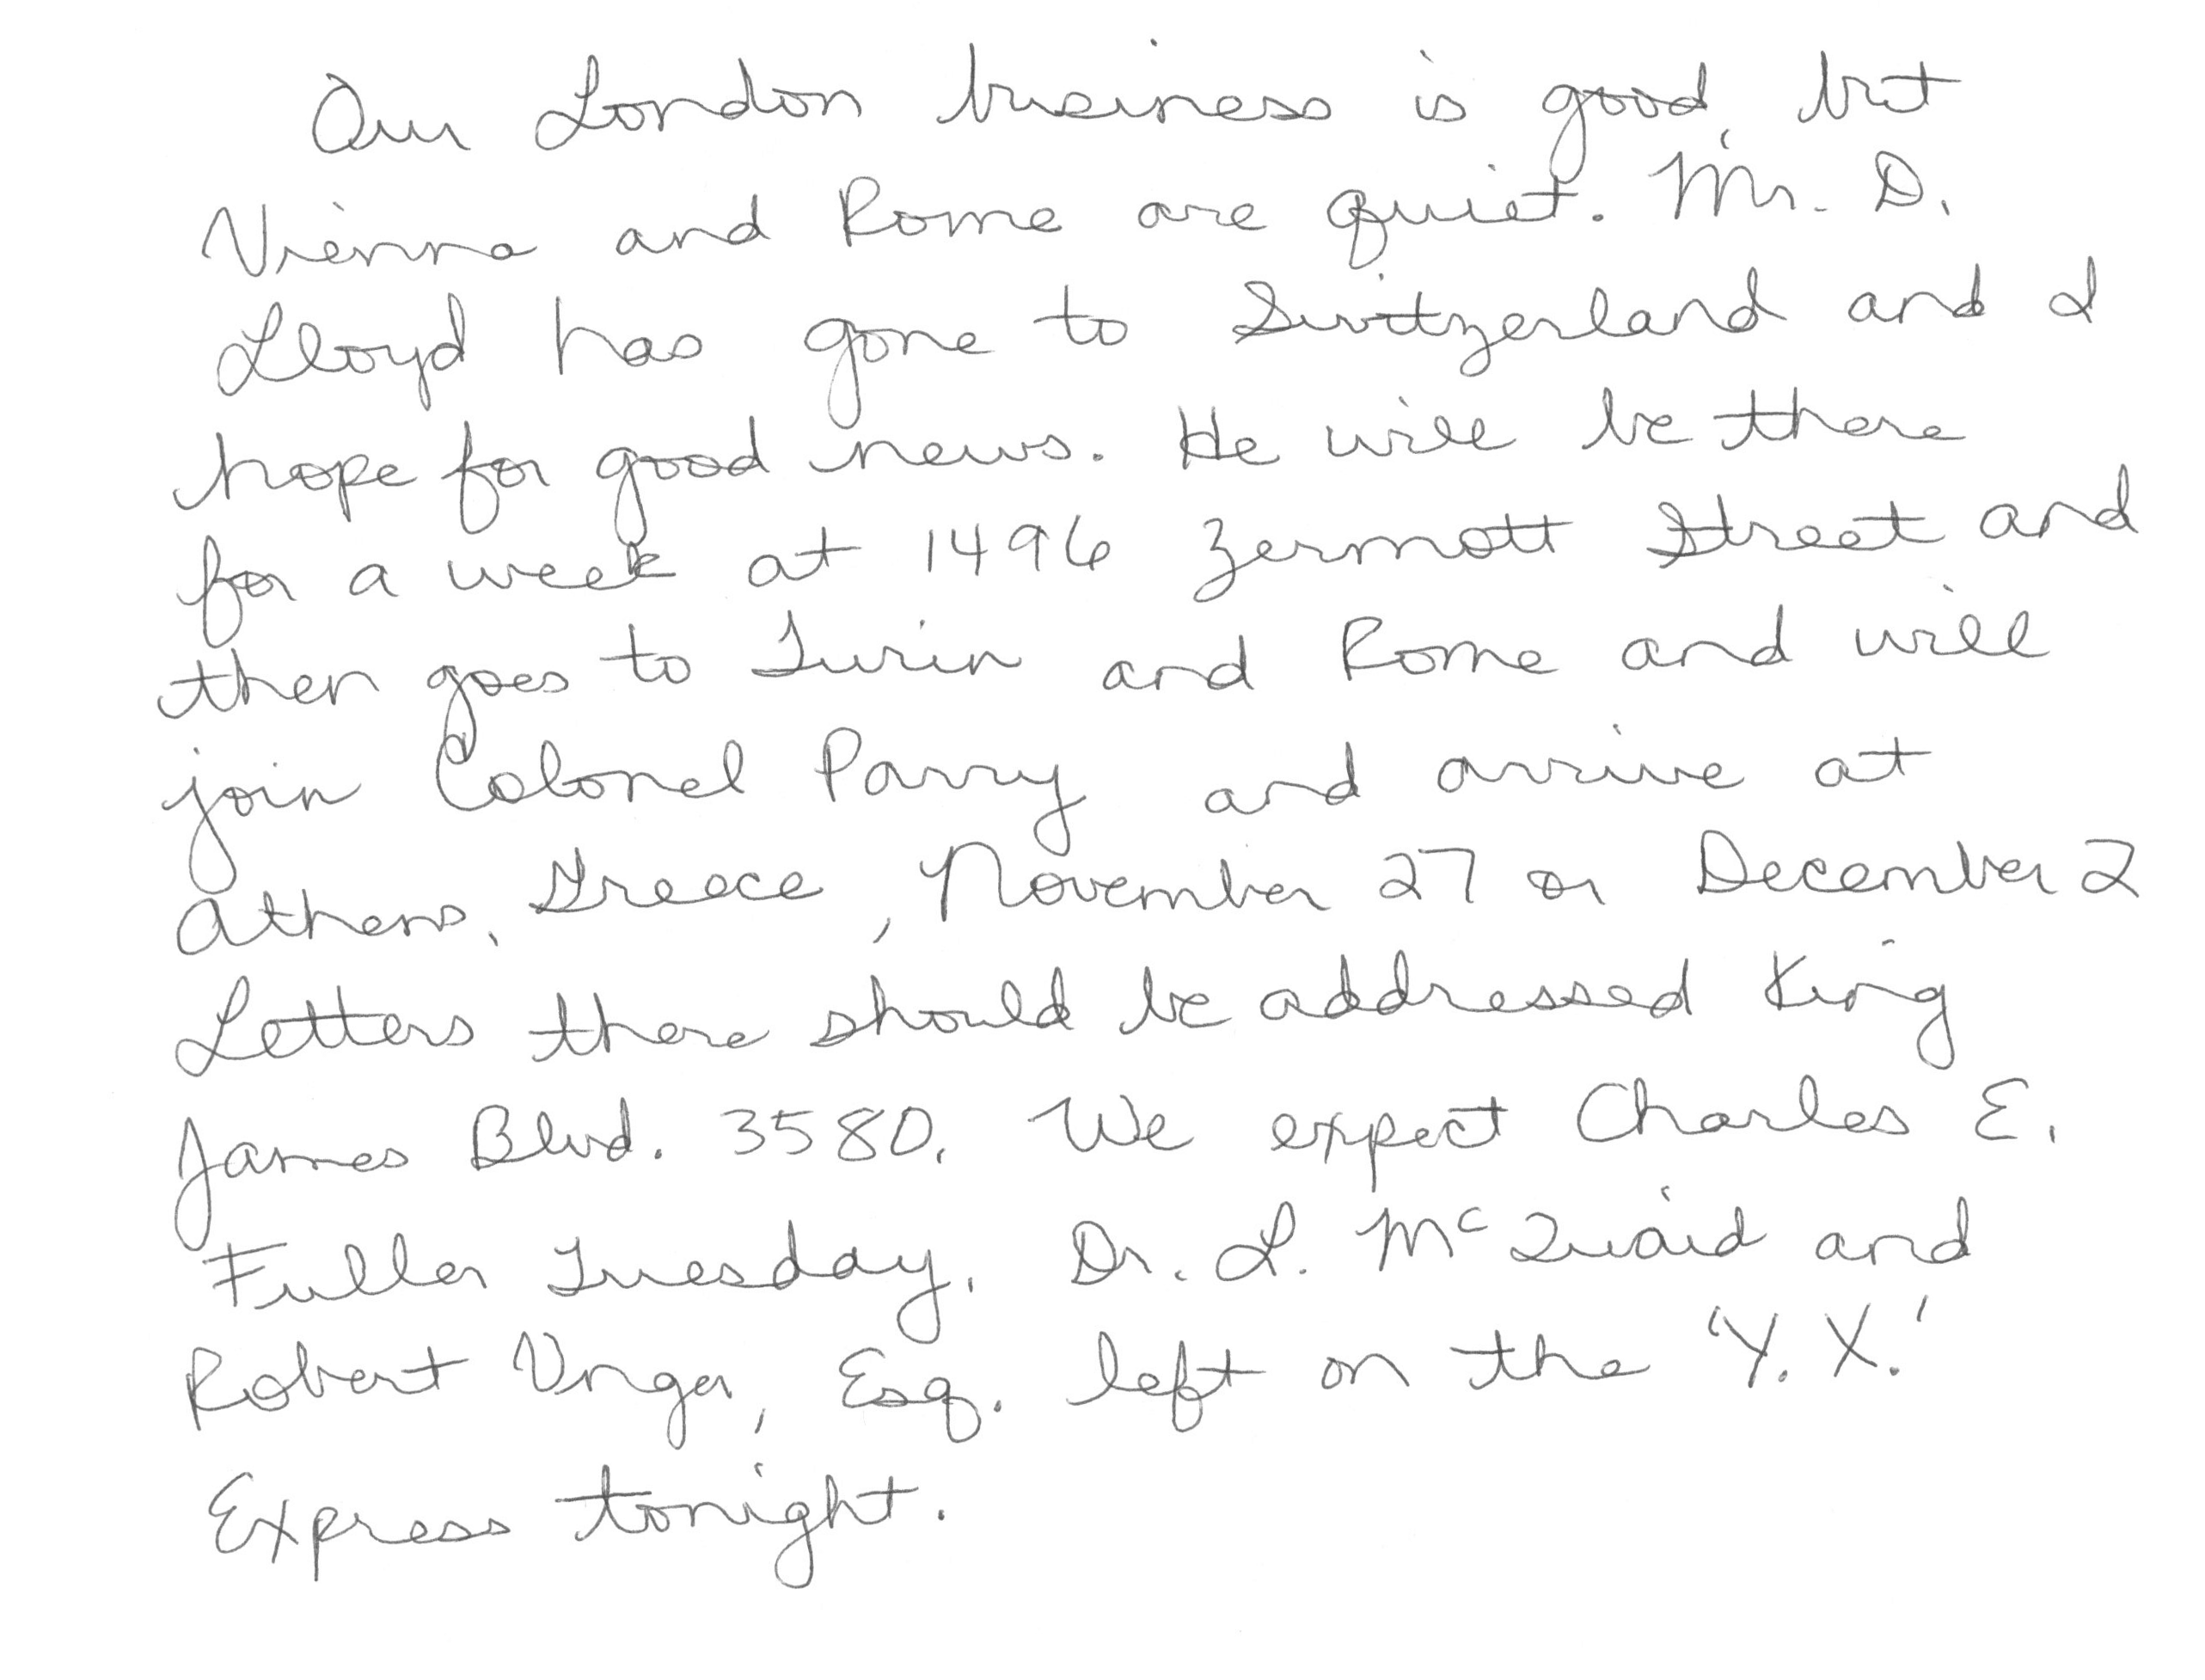 Our London business is good, but
Vienna and Rome are quiet. Mr. D.
Lloyd has gone to Switzerland and I
hope for good news. He will be there
for a week at 1496 Zermott Street and
then goes to Turin and Rome and will
join Colonel Parry and arrive at
Athens, Greece, November 27 or December 2
Letters there should be addressed King
James Blvd. 3580. We expect Charles E.
Fuller Tuesday. Dr. L. McQuaid and
Robert Unger, Esq. left on the 'Y. X.'
Express tonight.